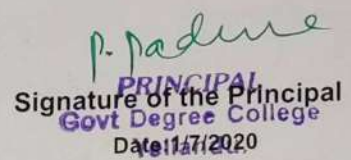 P. Padma
PRINCIPAL
Signature of the Principal
Govt Degree College
Date:1/7/2020